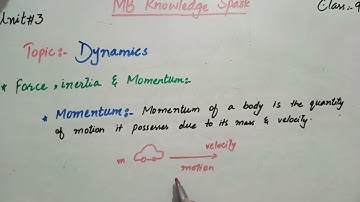 MB Knowledge Spark
Unit#3
Class:- 9
Topic:- Dynamics
* Force, inertia & Momentum:-
* Momentum:- Momentum of a body is the quantity
of motion it possesses due to its mass & velocity.
m
velocity
motion